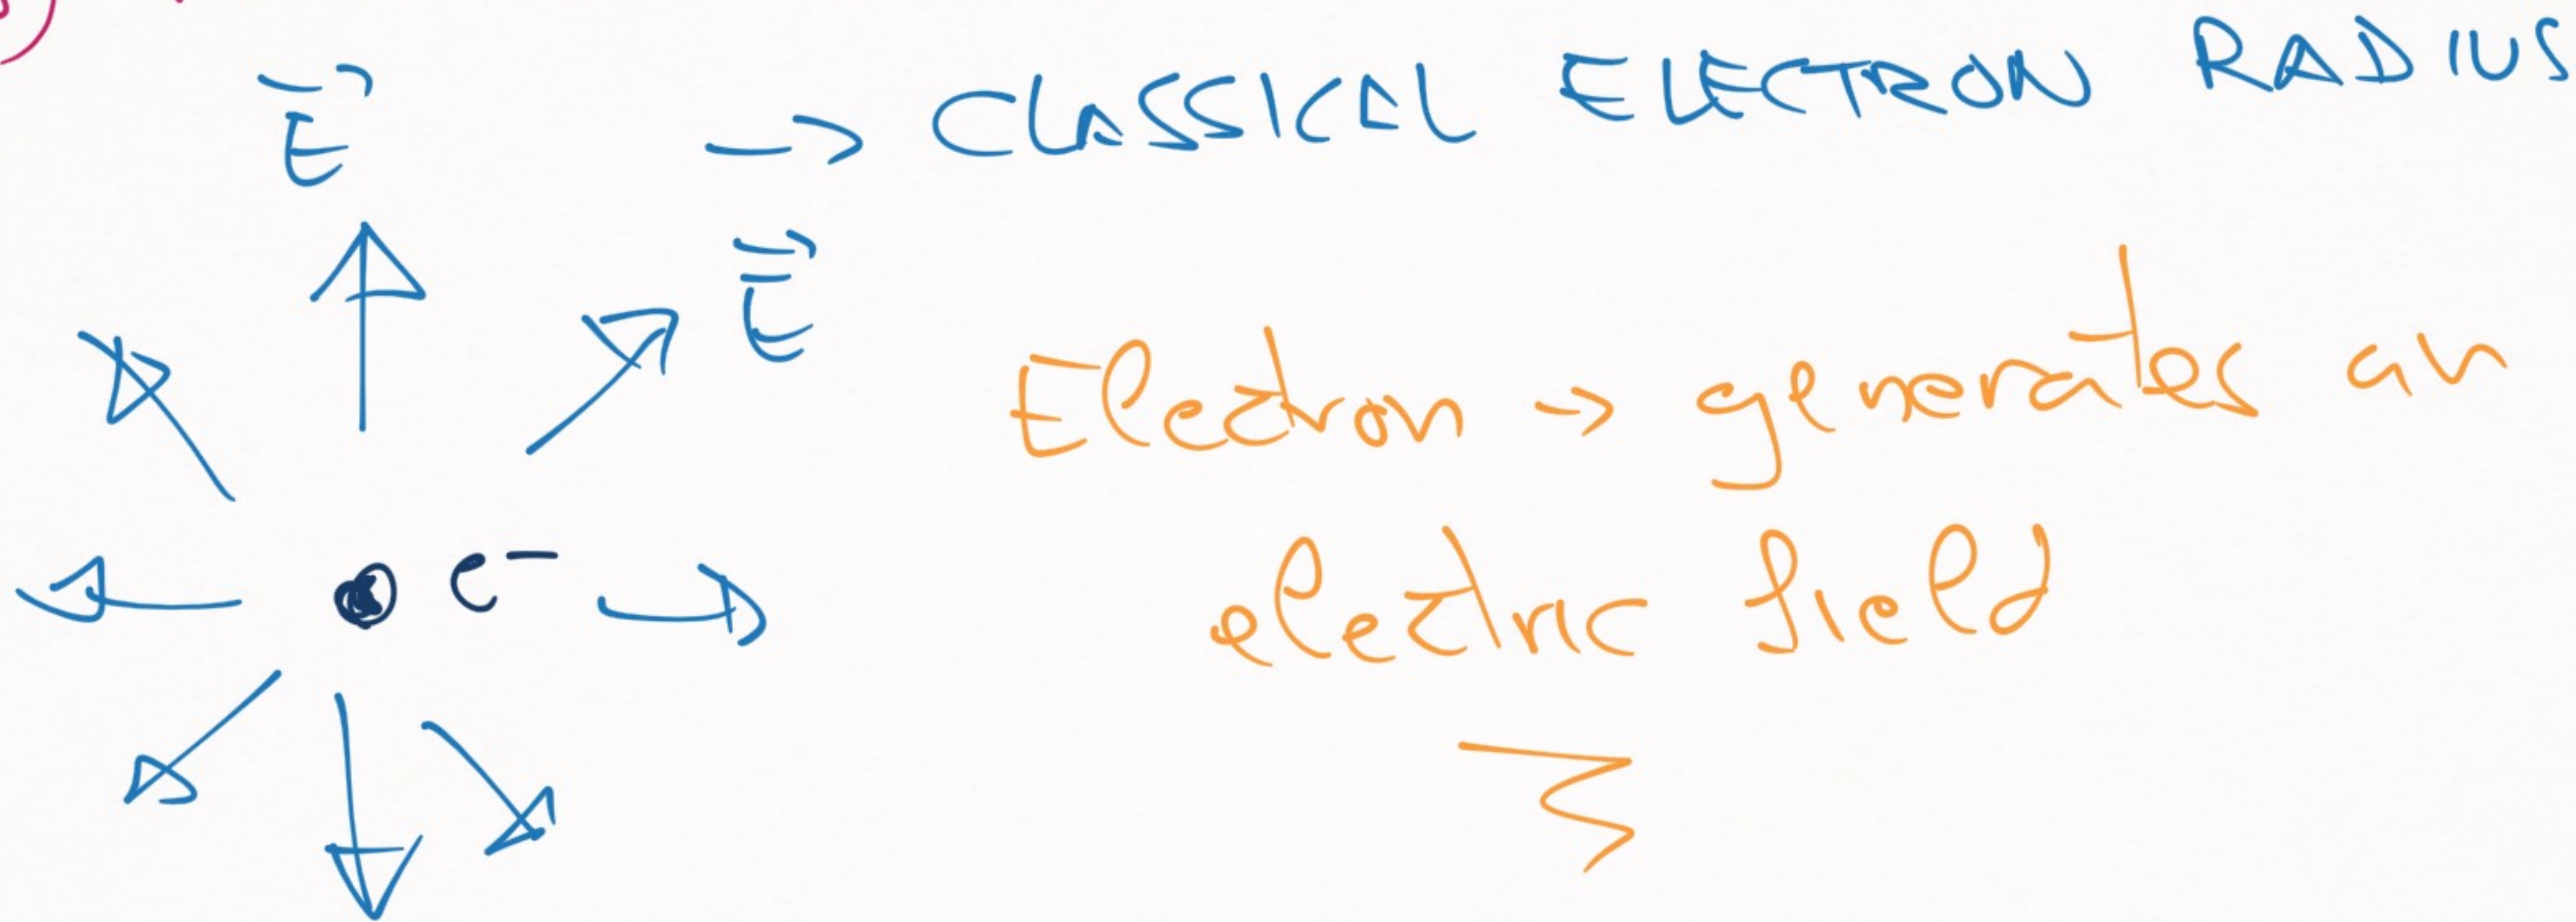 E⃗
→ CLASSICAL ELECTRON RADIUS
E⃗
Electron → generates an
electric field
e⁻